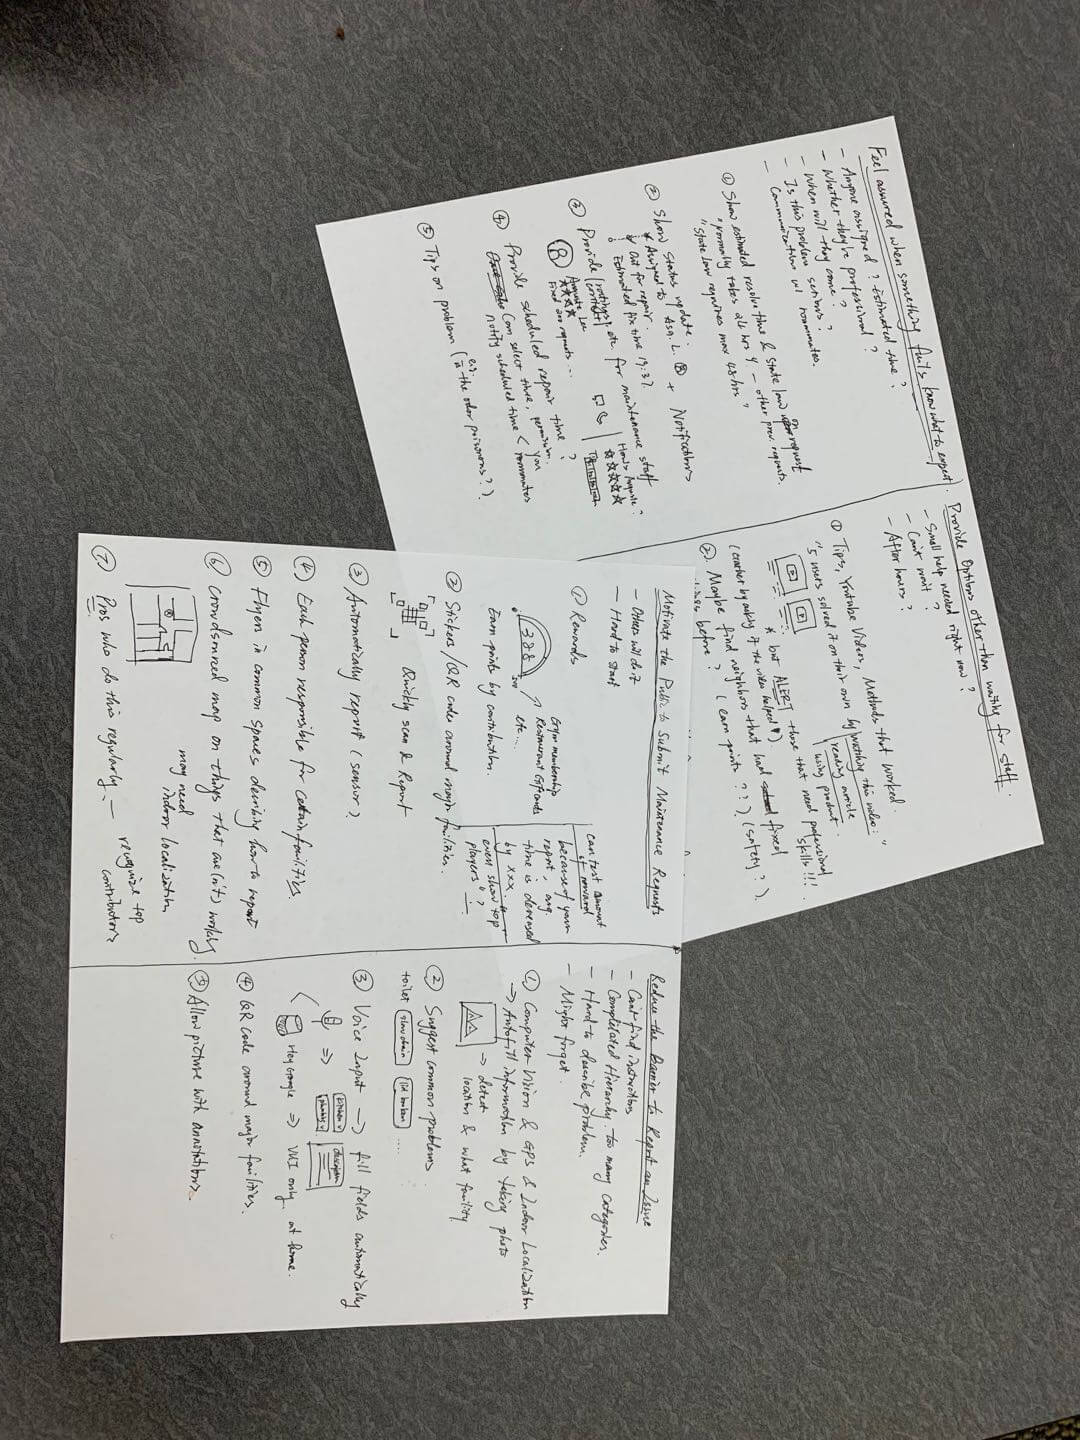 Feel assured when something fails, know what to expect.
- Anyone assigned? Estimated time?
- Whether they're professional?
- When will they come?
- Is this problem serious?
- Communication w/ roommates.
① Show estimated resolve time & State law
"Normally takes
— other prev. requests.
"State Law requires max 48 hrs"
② Show Status update. + Notifications
Assigned to
Out for repair.
Estimated fix time
Provide etc. for maintenance staff
Fixed 200 requests...
④ Provide scheduled repair time?
(Can select time, permission.
notify scheduled time < You
roommates
⑤ Tips on problem (ex: is the odor poisonous?)
Provide Options other than waiting for staff.
- Small help needed right now?
- Can't wait?
- After hours?
① Tips, Youtube Videos, Methods that worked.
"5 users solved it on their own by watching this video."
reading article
using product.
* but ALERT those that need professional skills!!!
(earlier by asking if the video helped)
②. Maybe find neighbors that had fixed
before? (earn points???) (safety?).
Motivate the Public to Submit Maintenance Requests
- Others will do it
- Hard to start
① Rewards
328
Gym membership
Restaurant Giftcards
etc...
Earn points by contribution.
can test amount
of reward
because of your
report, avg.
time is decreased
by xxx.
even show top
players"?
② Stickers/QR code around major facilities.
Quickly scan & Report
③ Automatically report (sensor?)
④ Each person responsible for certain facilities.
⑤ Flyers in common spaces describing how to report
⑥ Crowdsourced map on things that are (n't) working.
may need
indoor localization
⑦ Pros who do this regularly. — recognize top
contributors
Reduce the Barrier to Report an Issue
- Can't find instructions
- Complicated Hierarchy, too many categories.
- Hard to describe problem.
- Might forget.
① Computer Vision & GPS & Indoor Localization
→ Autofill information by taking photo
→ detect
location & what facility
② Suggest common problems
toilet slow drain lid broken ...
③ Voice Input → fill fields automatically
kitchen
description
Hey Google ⇒ VUI only at home.
④ QR code around major facilities.
⑤ Allow picture with annotations.